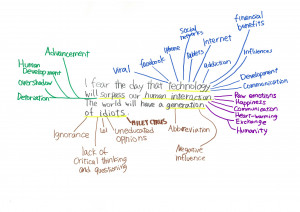 financial
benefits
Social
networks
Internet
iPhone
Facebook
Tablets
Influences
Viral
Addiction
Advancement
Human
Development
overshadow
Development
Communication
I fear the day that Technology
will surpass our human interaction.
The world will have a generation
of idiots.
Raw emotions
Happiness
Communication
Heart-warming
Exchange
Humanity
MILEY CYRUS
Ignorance
lol
uneducated
opinions
Abbreviation
lack of
Critical thinking
and questioning
Negative
influence